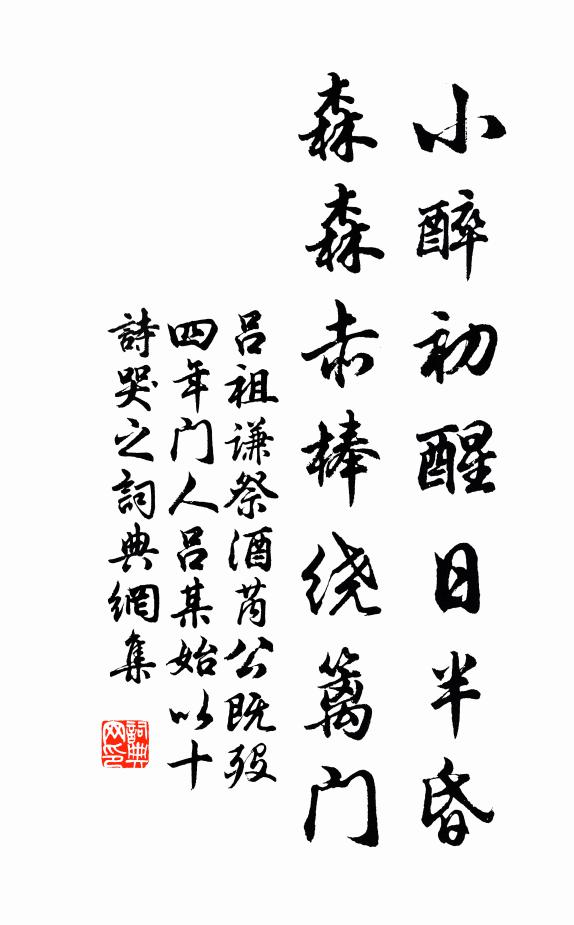 小醉初醒日半昏
森森赤棒绕篱门
吕祖谦祭酒芮公既殁
四年门人吕某始以十
詩哭之詞典網集
詞典
网印